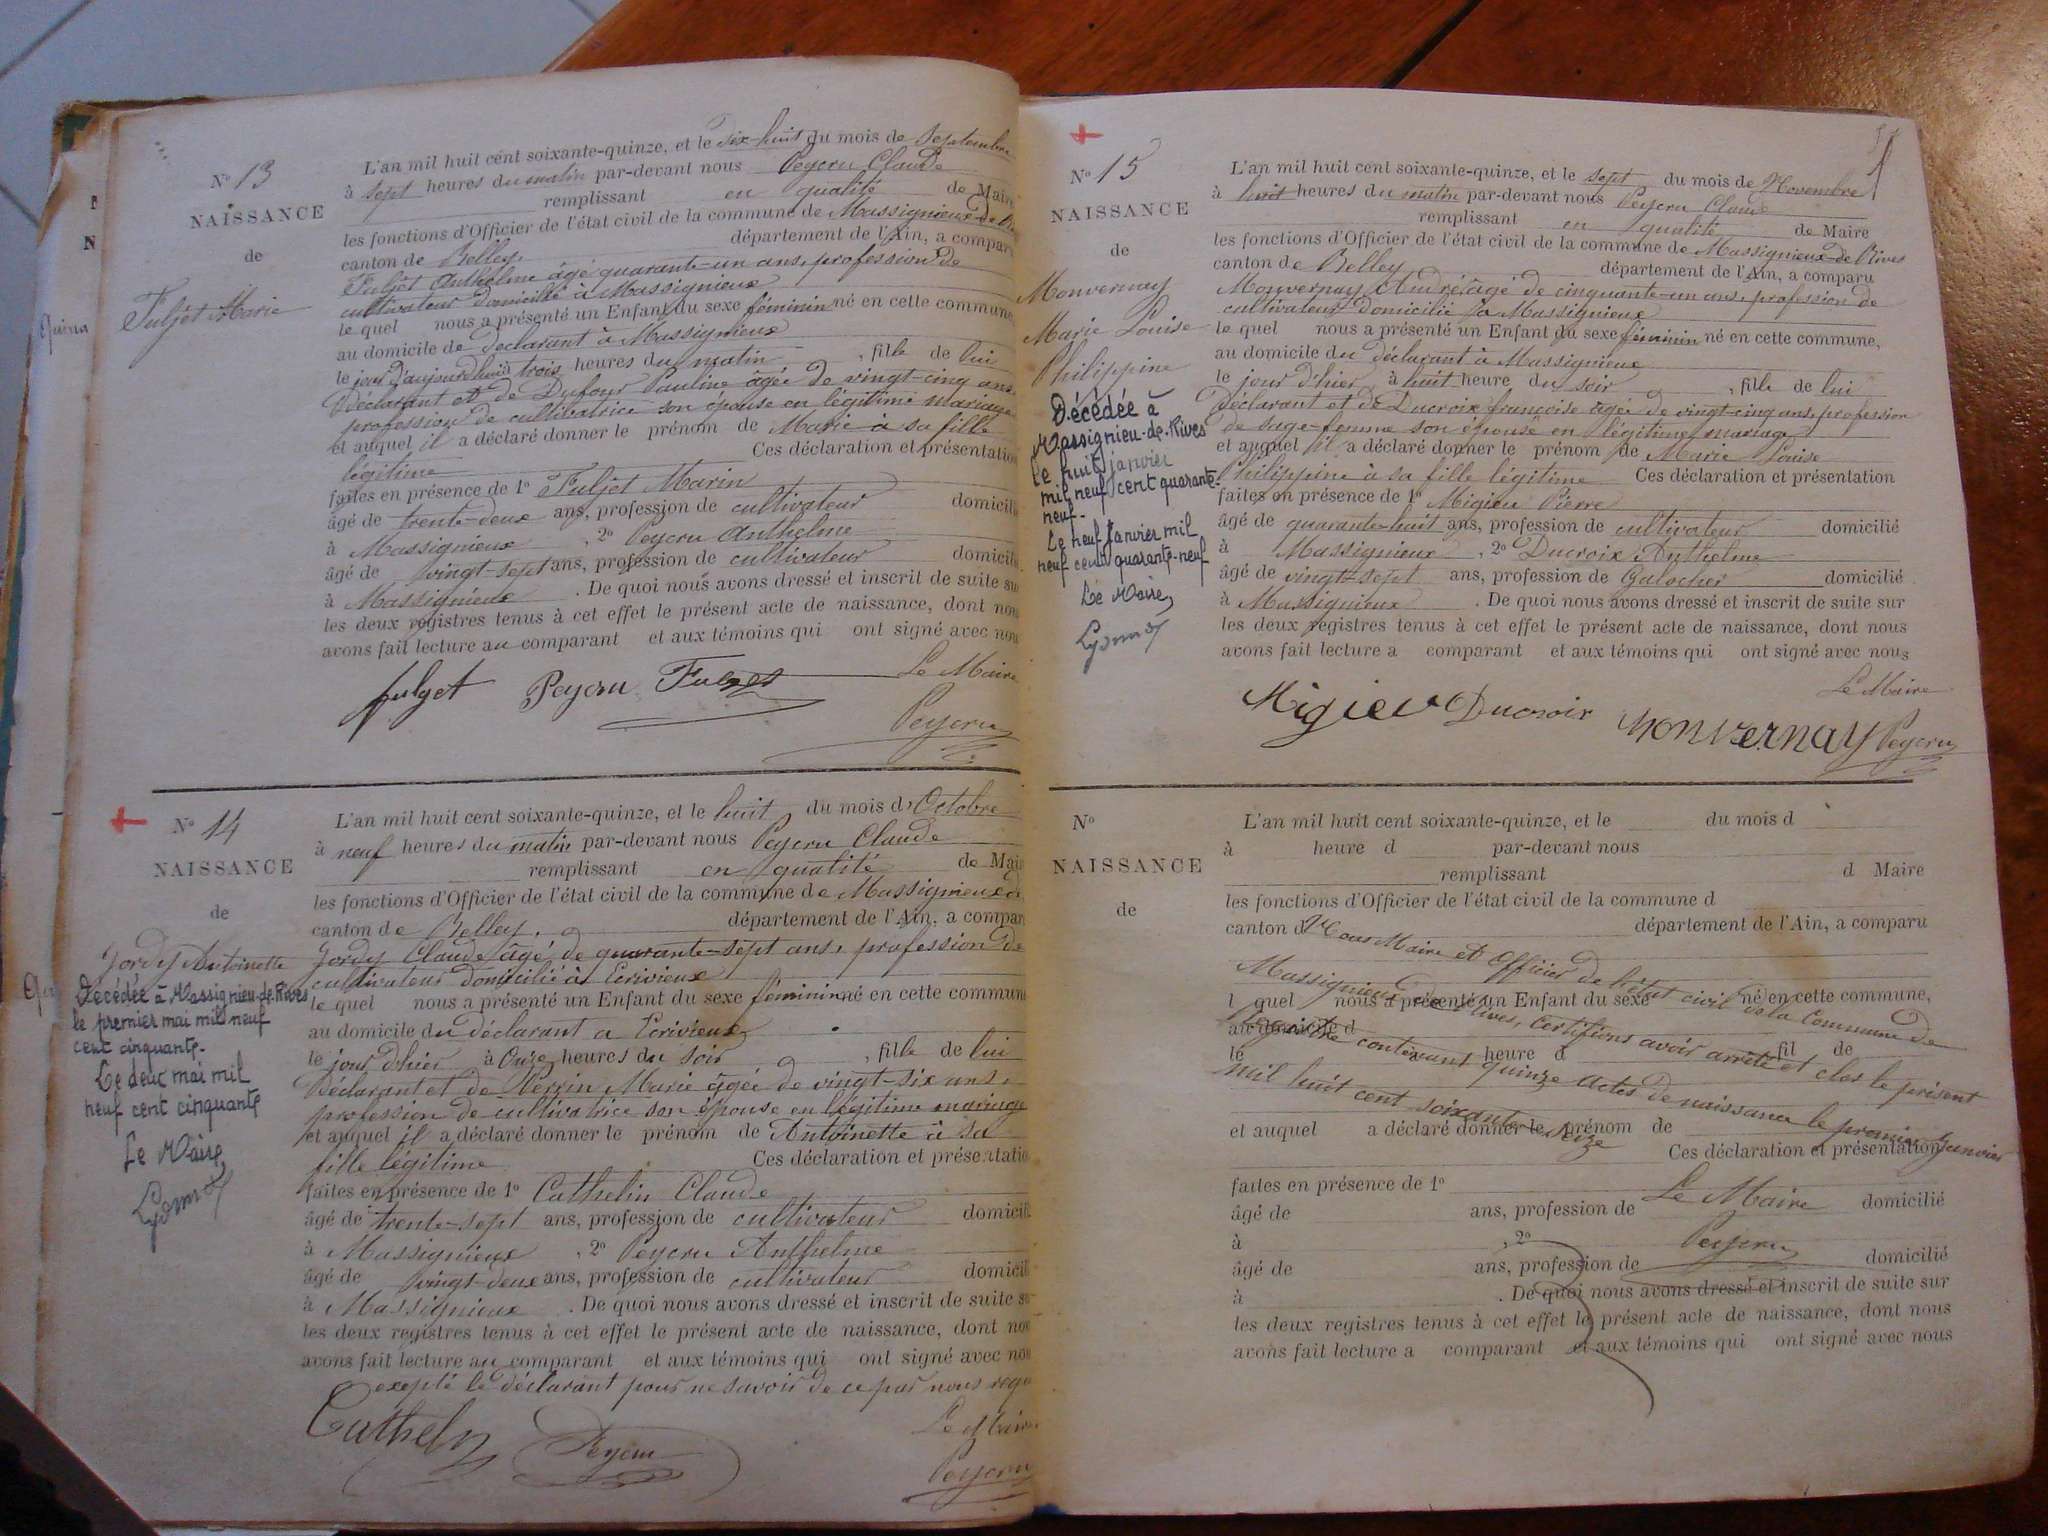 N° 13
NAISSANCE
de
Fuljet Marie
L'an mil huit cent soixante-quinze, et le dix-huit du mois de Septembre
à sept heures du matin par-devant nous Peycru Claude
remplissant en qualité de Maire
les fonctions d'Officier de l'état civil de la commune de Massignieux-de-
canton de Belley. département de l'Ain, a comparu
Fuljet Anthelme âgé quarante-un ans, profession de
cultivateur domicilié à Massignieux
le quel nous a présenté un Enfant du sexe féminin né en cette commune,
au domicile de declarant à Massignieux
le jour d'aujourd'hui à trois heures du matin, fille de lui
Déclarant et de Dufour Pauline âgée de vingt-cinq ans,
profession de cultivatrice son épouse en légitime mariage
et auquel il a déclaré donner le prénom de Marie à sa fille
légitime Ces déclaration et présentation
faites en présence de 1° Fuljet Marin
âgé de trente-deux ans, profession de cultivateur domicilié
à Massignieux, 2° Peycru Anthelme
âgé de vingt-sept ans, profession de cultivateur domicilié
à Massignieux. De quoi nous avons dressé et inscrit de suite sur
les deux registres tenus à cet effet le présent acte de naissance, dont nous
avons fait lecture au comparant et aux témoins qui ont signé avec nous
Le Maire
fulget Peycru
Peycru
N° 14
NAISSANCE
de
Jordy Antoinette
Décédée à Massignieu-de-Rives
le premier mai mil neuf
cent cinquante.
Le deux mai mil
neuf cent cinquante
Le Maire,
L'an mil huit cent soixante-quinze, et le huit du mois d'Octobre
à neuf heures du matin par-devant nous Peycru Claude
remplissant en qualité de Maire
les fonctions d'Officier de l'état civil de la commune de Massignieux d
canton de Belley. département de l'Ain, a comparu
Jordy Claude âgé de quarante-sept ans, profession de
cultivateur domicilié à Ecrivieux
le quel nous a présenté un Enfant du sexe féminin né en cette commune
au domicile du déclarant a Ecrivieux
le jour d'hier à Onze heures du soir, fille de lui
Déclarant et de Perrin Marie âgée de vingt-six ans,
profession de cultivatrice son épouse en légitime mariage
et auquel il a déclaré donner le prénom de Antoinette à sa
fille légitime Ces déclaration et présentation
faites en présence de 1° Cathelin Claude
âgé de trente-sept ans, profession de cultivateur domicilié
à Massignieux, 2° Peycru Anthelme
âgé de vingt-deux ans, profession de cultivateur domicilié
à Massignieux. De quoi nous avons dressé et inscrit de suite sur
les deux registres tenus à cet effet le présent acte de naissance, dont nous
avons fait lecture au comparant et aux témoins qui ont signé avec nous
excepté le déclarant pour ne savoir de ce par nous requ
Le Maire
Cathelin Peycru
Peycru
N° 15
NAISSANCE
de
Monvernay
Marie Louise
Philippine
Décédée à
Massignieu-de-Rives
le huit janvier
mil neuf cent quarante-
neuf-
Le neuf janvier mil
neuf cent quarante-neuf
Le Maire,
L'an mil huit cent soixante-quinze, et le sept du mois de Novembre
à huit heures du matin par-devant nous Peycru Claude
remplissant en qualité de Maire
les fonctions d'Officier de l'état civil de la commune de Massignieux-de-Rives
canton de Belley département de l'Ain, a comparu
Monvernay André, âgé de cinquante-un ans, profession de
cultivateur domicilié à Massignieux
le quel nous a présenté un Enfant du sexe féminin né en cette commune,
au domicile du déclarant à Massignieux
le jour d'hier, à huit heure du soir, fille de lui
Déclarant et de Ducroix françoise âgée de vingt-cinq ans, profession
de sage-femme son épouse en légitime mariage
et auquel il a déclaré donner le prénom de Marie Louise
Philippine à sa fille légitime Ces déclaration et présentation
faites en présence de 1° Migieu Pierre
âgé de quarante-huit ans, profession de cultivateur domicilié
à Massignieux, 2° Ducroix Anthelme
âgé de vingt-sept ans, profession de Galocher domicilié
à Massignieux. De quoi nous avons dressé et inscrit de suite sur
les deux registres tenus à cet effet le présent acte de naissance, dont nous
avons fait lecture a comparant et aux témoins qui ont signé avec nous
Le Maire
Migieu Ducroix Monvernay Peycru
N°
NAISSANCE
de
L'an mil huit cent soixante-quinze, et le du mois d
à heure d par-devant nous
remplissant d Maire
les fonctions d'Officier de l'état civil de la commune d
canton d département de l'Ain, a comparu
Nous Maire et Officier de l'état civil de la Commune de
Massignieux de Rives, certifions avoir arrêté et clos le présent
Registre contenant quinze actes de naissance le premier Janvier
mil huit cent soixante Seize
l quel nous a présenté un Enfant du sexe né en cette commune,
au domicile d
le heure d fil de
et auquel a déclaré donner le prénom de
Ces déclaration et présentation
faites en présence de 1°
Le Maire
âgé de ans, profession de domicilié
à, 2° Peycru
âgé de ans, profession de domicilié
à. De quoi nous avons dressé et inscrit de suite sur
les deux registres tenus à cet effet le présent acte de naissance, dont nous
avons fait lecture a comparant et aux témoins qui ont signé avec nous